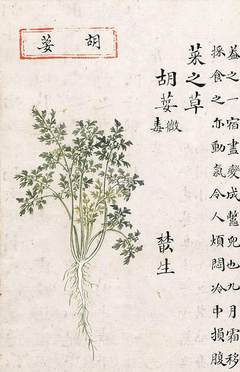 蓋之一宿盡變成鱉兒也九月霜移
採食之亦動氣令人煩悶冷中損腹
菜之草
胡荽
微毒
生
胡荽